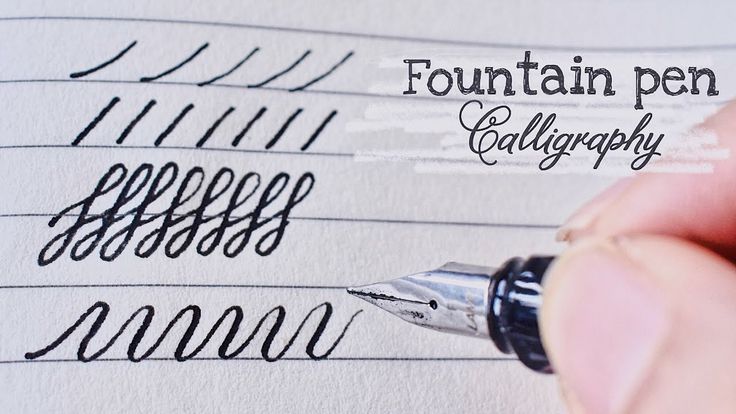 Fountain pen
Calligraphy